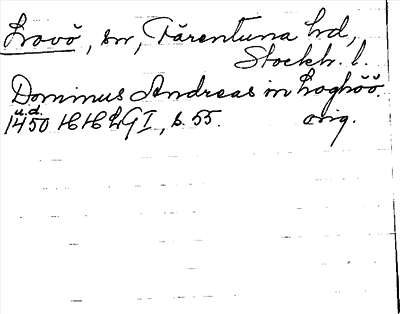 Lovö, sn, Färentuna hd,
Stockh. l.
Dominus Andreas in Loghöö.
u.d.
1450 HH LGI, s. 55. orig.